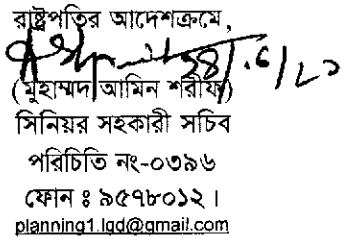 রাষ্ট্রপতির আদেশক্রমে,
(মুহাম্মদ আমিন শরীফ)
সিনিয়র সহকারী সচিব
পরিচিতি নং-০৩৯৬
ফোন ঃ ৯৫৭৮০১২ ।
planning1.lgd@gmail.com